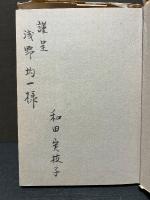 謹呈
浅野均一様
和田実枝子